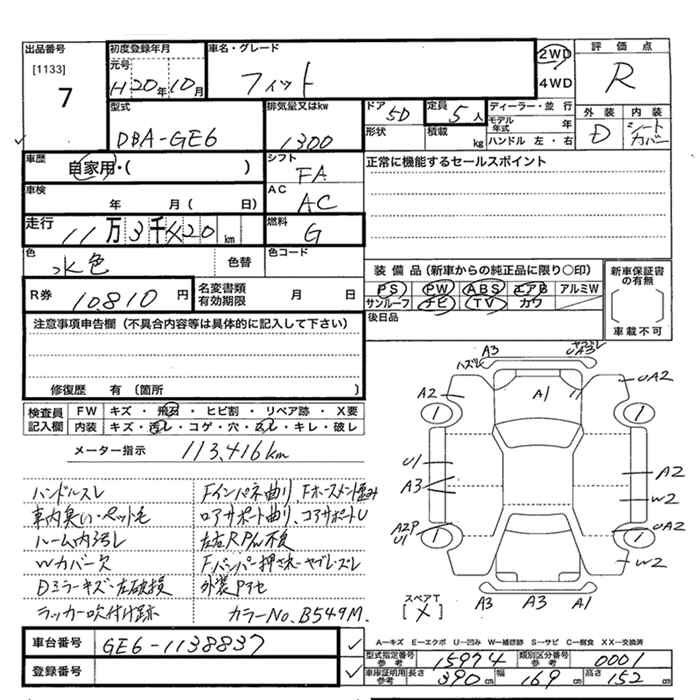 出品番号
[1133]
7
初度登録年月
元号
H 20年 10月
車名・グレード
フィット
2WD
4WD
評価点
R
型式
DBA-GE6
排気量又はkw
1300
ドア
5D
形状
定員
5人
積載
kg
ディーラー・並行
モデル年式 年
ハンドル 左・右
外装
D
内装
シートカバー
車歴
自家用・( )
シフト
FA
正常に機能するセールスポイント
車検
年 月( 日)
AC
AC
走行
11万3千420km
燃料
G
色
水色
色替
色コード
装備品(新車からの純正品に限り〇印)
PS PW ABS エアB アルミW
サンルーフ ナビ TV カワ
新車保証書の有無
車載不可
R券
10.810円
名変書類有効期限
月 日
後日品
注意事項申告欄(不具合内容等は具体的に記入して下さい)
修復歴 有(箇所 )
検査員記入欄
FW キズ・飛石・ヒビ割・リペア跡・X要
内装 キズ・汚レ・コゲ・穴・スレ・キレ・破レ
メーター指示
113,416km
ハンドルスレ
車内臭い・ペット毛
ルーム内ヨゴレ
Wカバー欠
Dミラーキズ・左破損
ラッカー吹付け跡
Fインパネ曲り、Fホースメント歪み
ロアサポート曲り、コアサポートU
左右RPパネ不良
Fバンパー押され・ヤブレ・ズレ
カラーNo. B549M.
A3
ハズレ
ヤブレ
UA3
A2
A1
UA2
U1
A3
A2
W2
A2P
U1
UA2
W2
スペアT
[メ]
A3
A3
A1
車台番号
GE6-1138837
登録番号
A－キズ E－エクボ U－凹み W－補修跡 S－サビ C－腐食 XX－交換済
型式指定番号 参考
15974
類別区分番号 参考
0001
車庫証明用 参考
長さ 390cm
幅 169cm
高さ 152cm